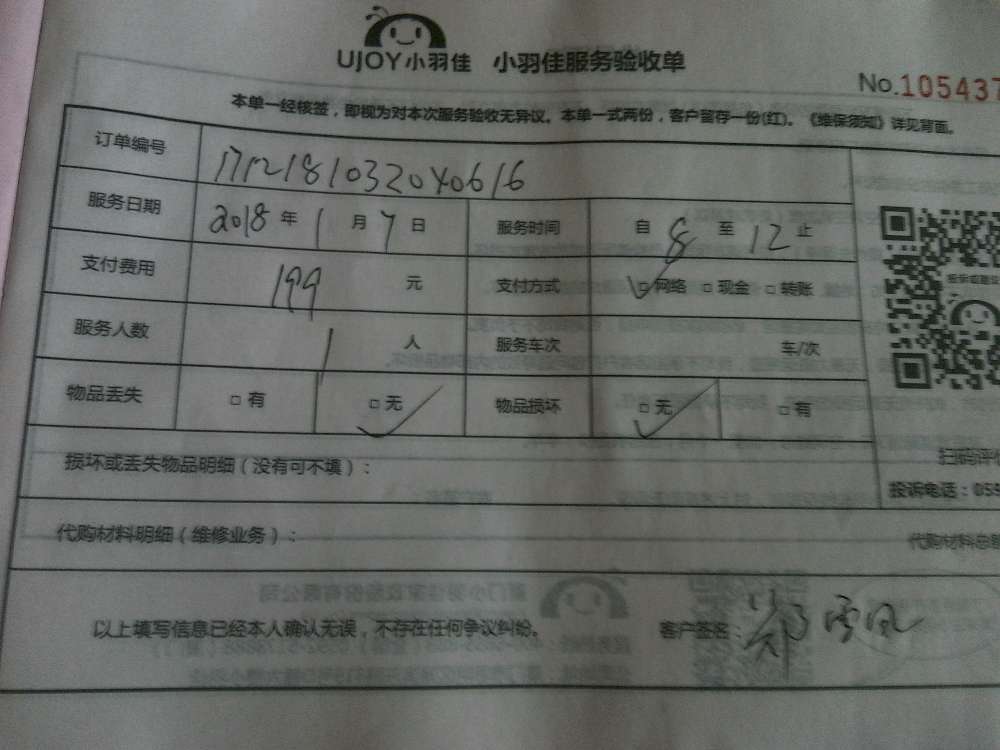 UJOY小羽佳 小羽佳服务验收单
No.105437
本单一经核签，即视为对本次服务验收无异议。本单一式两份，客户留存一份(红)。《维保须知》详见背面。
订单编号 1712181032040616
服务日期 2018年1月7日 服务时间 自8至12止
支付费用 199元 支付方式 ☑网络 □现金 □转账
服务人数 1人 服务车次 车/次
物品丢失 □有 ☑无 物品损坏 ☑无 □有
损坏或丢失物品明细（没有可不填）：
扫码评
投诉电话：055
代购材料明细（维修业务）：
代购材料总
以上填写信息已经本人确认无误，不存在任何争议纠纷。 客户签名：郑雪凤